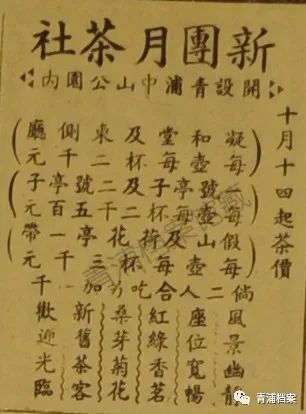 新團月茶社
開設青浦中山公園內
十月十四起茶價
凝和堂及東側廳
每壺每杯二千元
一號亭子及二號亭子
每壺每杯二千五百元
假山及荷花亭一帶
每壺每杯三千元
倘二人合吃另加千元
風景幽
座位寬暢
紅綠香茗
桑芽菊花
新舊茶客
歡迎光臨
青浦档案